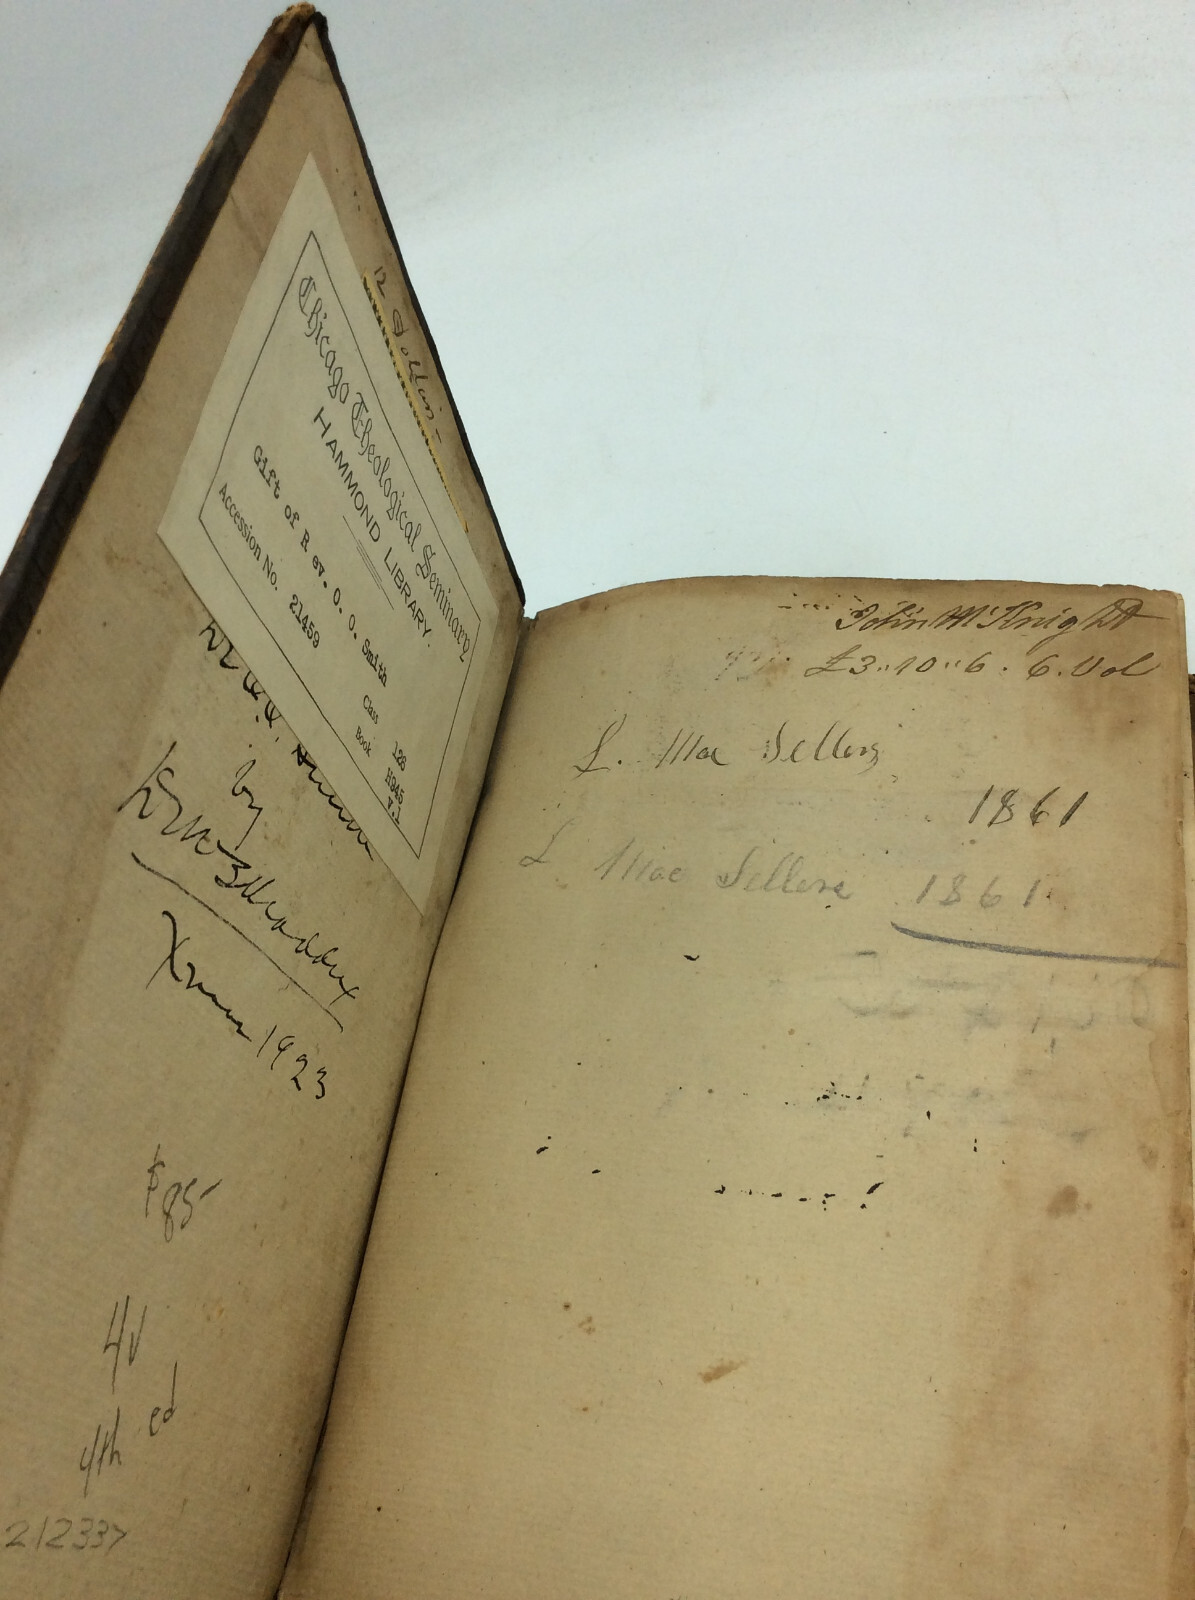 12 Dollars -
Chicago Theological Seminary
HAMMOND LIBRARY.
Gift of R ev. O. O. Smith
Accession No. 21459
Class 128
Book H945
V.1
by
Xmas 1923
$85
4v
4th ed
212337
John McKnight
£3..10..6. 6. Vol
L. Mac Sellers
1861
L Mac Sellers 1861